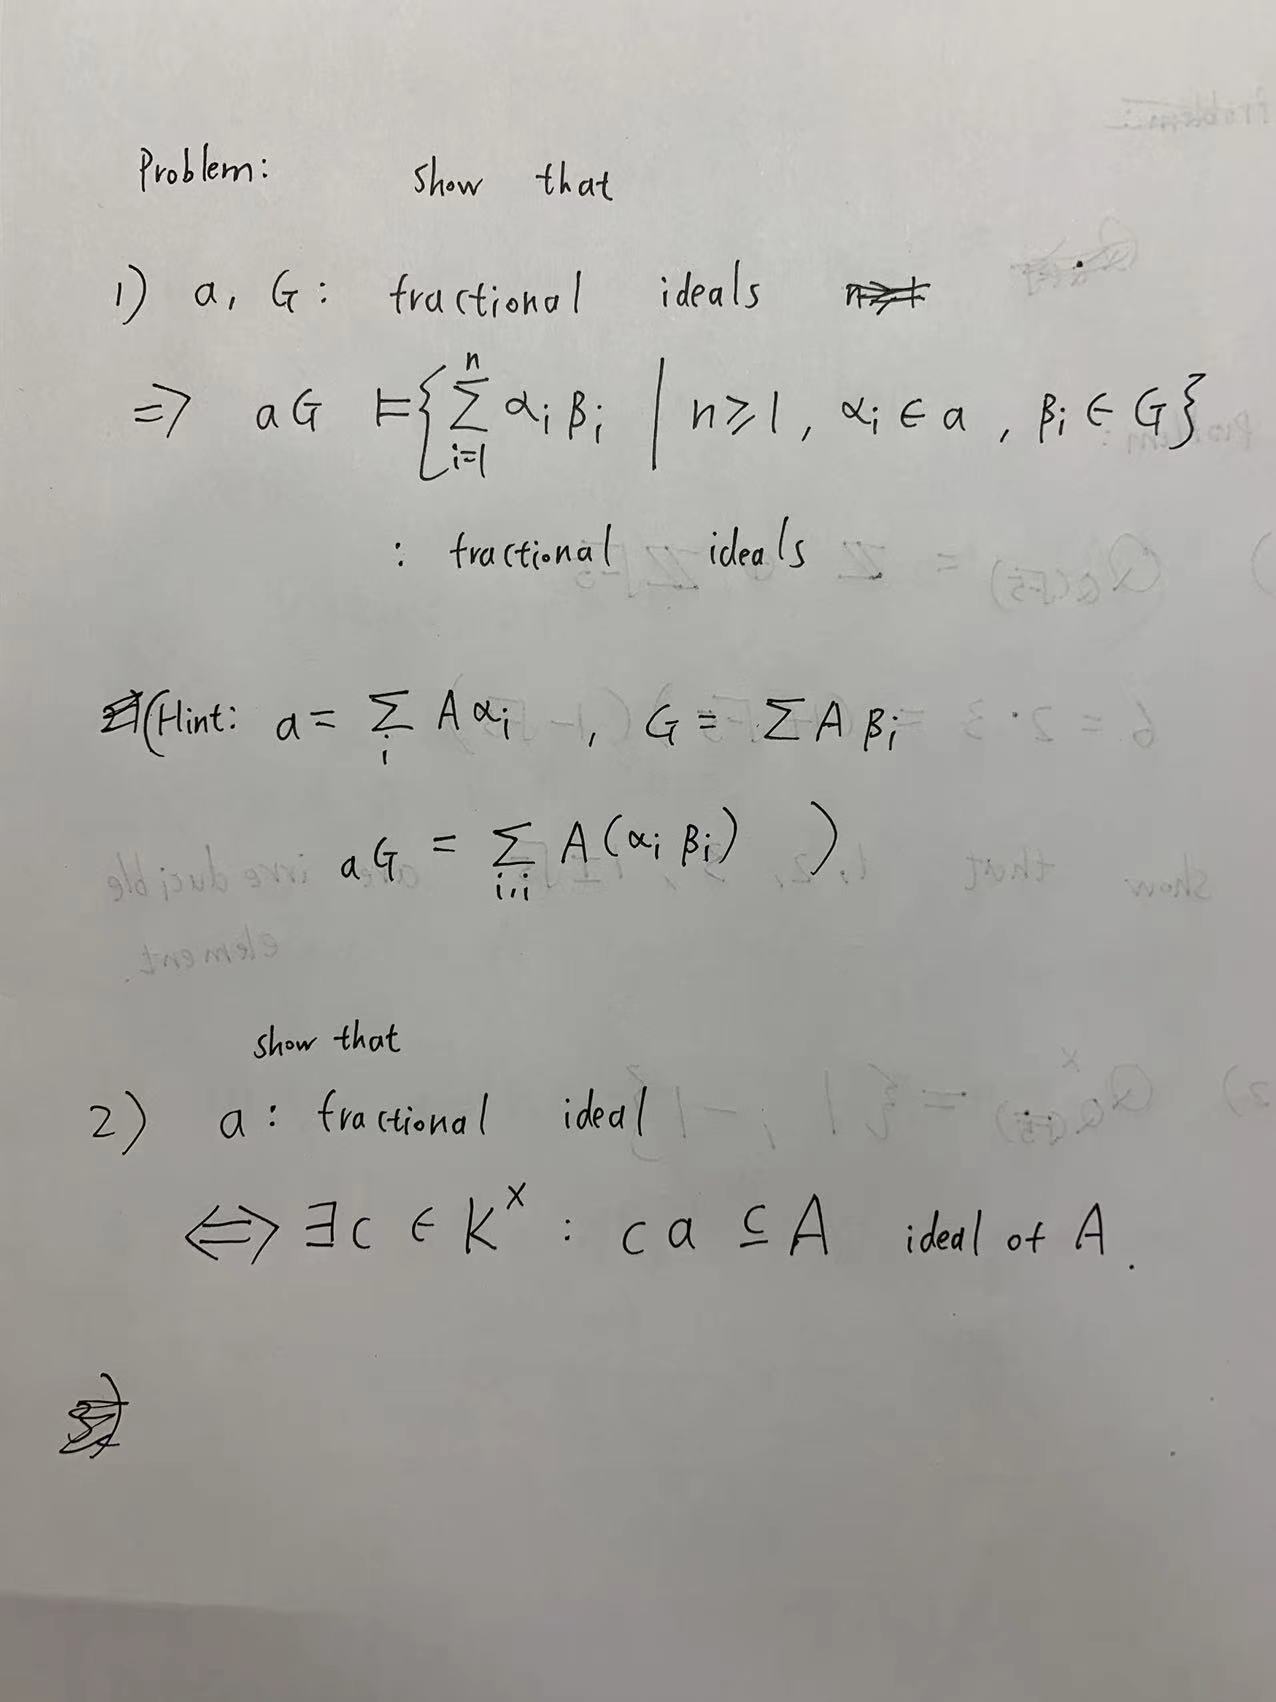 Problem: show that
1) a, G: fractional ideals
⇒ aG := { \sum_{i=1}^{n} α_i β_i | n ≥ 1, α_i ∈ a, β_i ∈ G }
: fractional ideals
(Hint: a = \sum_i A α_i , G = \sum A β_i
aG = \sum_{i,j} A(α_i β_j) )
show that
2) a: fractional ideal
⟺ ∃c ∈ K^× : ca ⊆ A ideal of A.